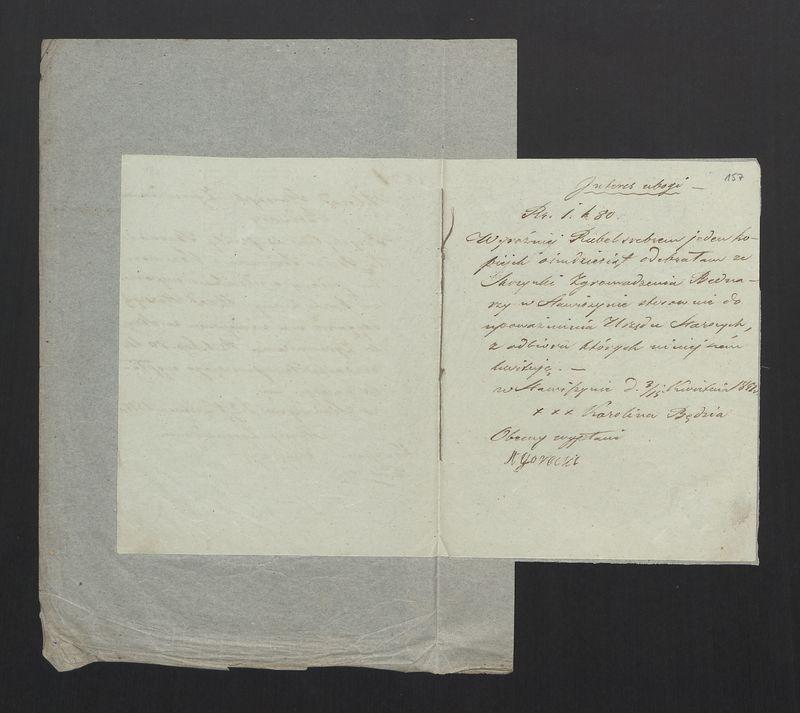 157
Interes ubogi —
Rs. 1. k 80.
Wyraźniej Rubel srebrem jeden ko-
piejek ośmdziesiąt odebrałam ze
Skrzynki Zgromadzenia Bedna-
rzy w Stawiszynie stosownie do
upoważnienia Urzędu Starszych,
z odbioru których niniejszém
kwituję. —
w Stawiszynie d. 3/15 Kwietnia
x x x Karolina Będzia
Obecny wypłaci